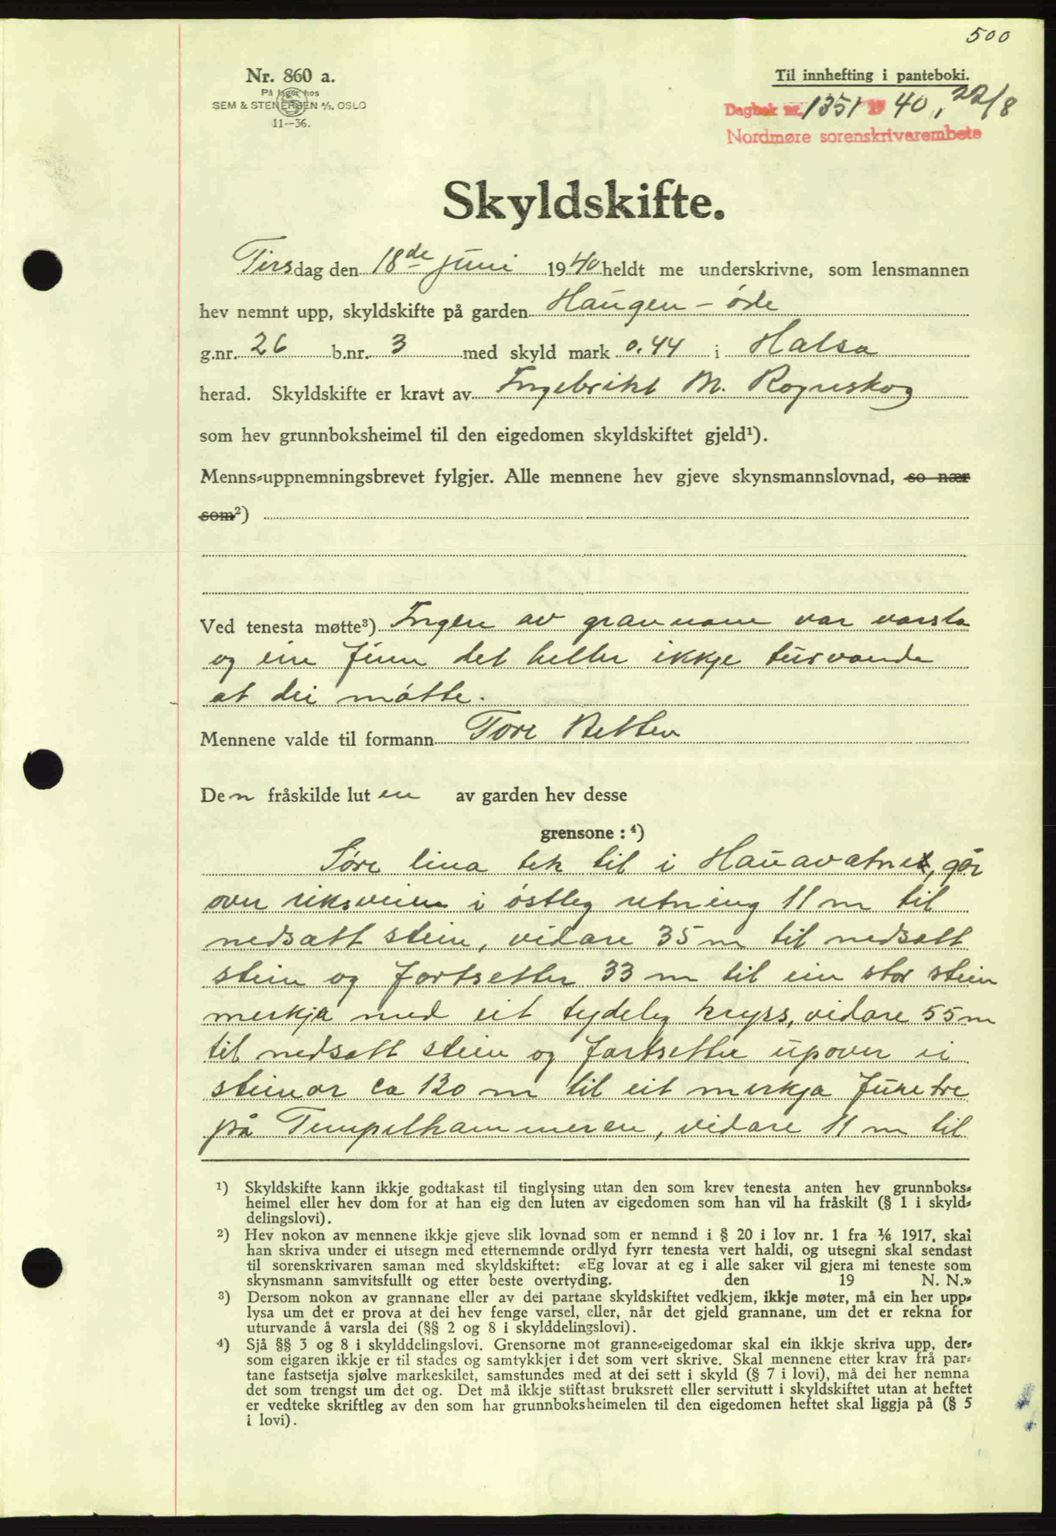 500
Nr. 860 a.
På lager hos
SEM & STENERSEN A/S, OSLO
11—36.
Til innhefting i panteboki.
Dagbok nr. 1351 19 40, 22/8
Nordmøre sorenskrivarembete
Skyldskifte.
Tirsdag den 18de juni 1940 heldt me underskrivne, som lensmannen
hev nemnt upp, skyldskifte på garden Haugen – øde
g.nr. 26 b.nr. 3 med skyld mark 0.44 i Halsa
herad. Skyldskifte er kravt av Ingebrikt M. Rognskog
som hev grunnboksheimel til den eigedomen skyldskiftet gjeld¹).
Menns-uppnemningsbrevet fylgjer. Alle mennene hev gjeve skynsmannslovnad, so nær
som²)
Ved tenesta møtte³) Ingen av grannane var varsla
og ein finn det heller ikkje turvande
at dei møtte.
Mennene valde til formann Tore Betten
Den fråskilde luten av garden hev desse
grensone : ⁴)
Søre lina tek til i Hauavatnet, går
over riksveien i østleg retning 11 m til
nedsatt stein, vidare 35 m til nedsatt
stein og fortsetter 33 m til ein stor stein
merkja med eit tydeleg kryss, vidare 55 m
til nedsatt stein og fortsetter upover ei
steinør ca 130 m til eit merkja furetre
på Tempelhammeren, vidare 11 m til
¹) Skyldskifte kann ikkje godtakast til tinglysing utan den som krev tenesta anten hev grunnboks-
heimel eller hev dom for at han eig den luten av eigedomen som han vil ha fråskilt (§ 1 i skyld-
delingslovi).
²) Hev nokon av mennene ikkje gjeve slik lovnad som er nemnd i § 20 i lov nr. 1 fra 1/6 1917, skal
han skriva under ei utsegn med etternemnde ordlyd fyrr tenesta vert haldi, og utsegni skal sendast
til sorenskrivaren saman med skyldskiftet: «Eg lovar at eg i alle saker vil gjera mi teneste som
skynsmann samvitsfullt og etter beste overtyding. den 19 N. N.»
³) Dersom nokon av grannane eller av dei partane skyldskiftet vedkjem, ikkje møter, må ein her upp-
lysa um det er prova at dei hev fenge varsel, eller, når det gjeld grannane, um det er rekna for
uturvande å varsla dei (§§ 2 og 8 i skylddelingslovi).
⁴) Sjå §§ 3 og 8 i skylddelingslovi. Grensorne mot granne-eigedomar skal ein ikkje skriva upp, der-
som eigaren ikkje er til stades og samtykkjer i det som vert skrive. Skal mennene etter krav frå par-
tane fastsetja sjølve markeskilet, samstundes med at dei sett i skyld (§ 7 i lovi), må dei her nemna
det som trengst um det og. Det må ikkje stiftast bruksrett eller servitutt i skyldskiftet utan at heftet
er vedteke skriftleg av den som har grunnboksheimelen til den eigedomen heftet skal liggja på (§ 5
i lovi).